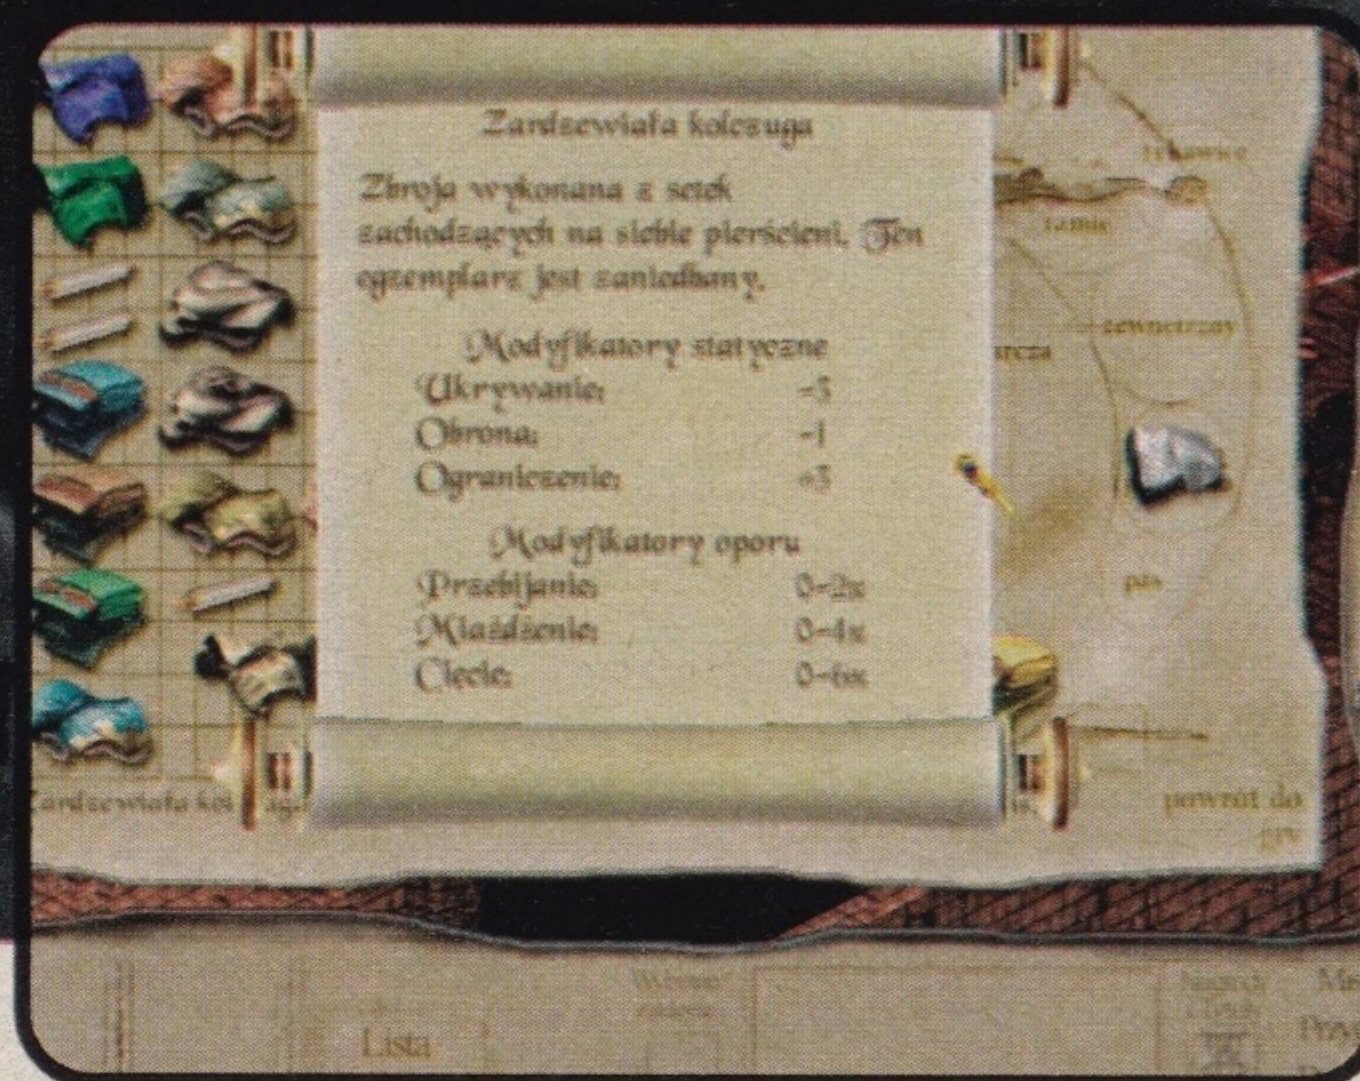 Zardzewiała kolczuga
Zbroja wykonana z setek
zachodzących na siebie pierścieni. Ten
egzemplarz jest zaniedbany.
Modyfikatory statyczne
Ukrywanie: -3
Obrona: -1
Ograniczenie: +3
Modyfikatory oporu
Przebijanie: 0-2x
Miażdżenie: 0-4x
Cięcie: 0-6x
rękawice
ramię
zewnętrzny
arcza
pas
powrót do
gry
Lista